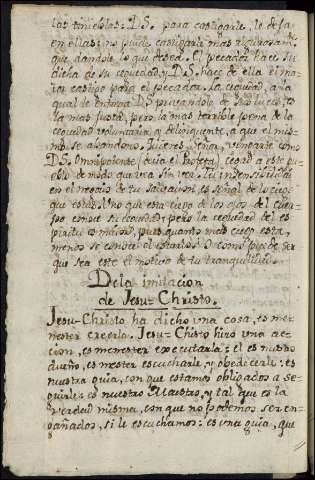 las tinieblas: DS. para castigarle, lo deja
en ellas: no puede castigarle mas rigurosam.te
que, dandole lo que desea. El pecador hace su
dicha de su ceguedad, y DS. hace de ella el ma-
ior castigo para el pecador. La ceguedad, a la
qual de entrega DS privandole de sus luces, es
la mas justa, pero la mas terrible pena de la
ceguedad voluntaria, y delinquente, a que el mis-
mo se abandonó. Quieres Señor, vengarte como
DS. Omnipotente (decia el Profeta) cegad a este pue-
blo de modo que vea sin ver. Tu insensibilidad
en el negocio de tu salvacion es señal de lo ciego
que estás. Uno que esta ciego de los ojos del cuer-
po conoce su ceguedad; pero la ceguedad del es-
piritu es maior, pues quanto mas ciego esta,
menos se conoce el estarlo. O como puede ser
que sea este el motivo de tu tranquilidad.
De la imitacion
de Jesu-Christo.
Jesu-Christo ha dicho una cosa, es me-
nester creerla. Jesu-Christo hizo una ac-
cion, es menester executarla: el es nuestro
dueño, es mester escucharle y obedecerle: es
nuestra guia, con que estamos obligados a se-
guirle: es nuestro Maestro, y tal que es la
verdad misma, con que no podemos ser en-
gañados, si le escuchamos: es una guia, que